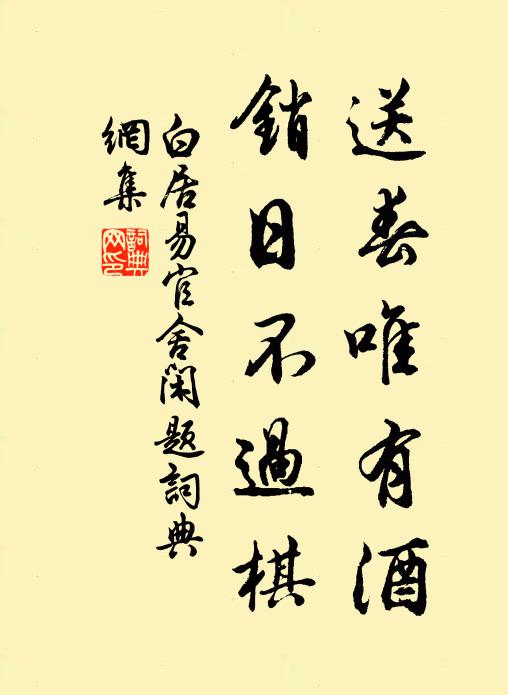 送春唯有酒
銷日不過棋
白居易官舍閑題詞典
網集
詞典
网印